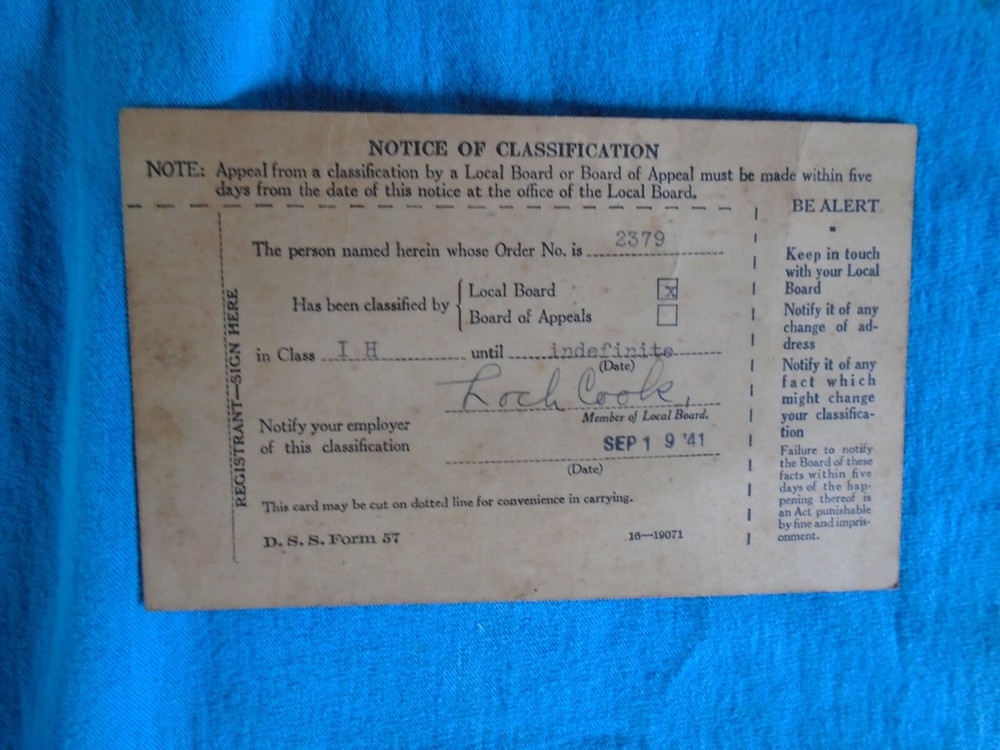 NOTICE OF CLASSIFICATION
NOTE: Appeal from a classification by a Local Board or Board of Appeal must be made within five
days from the date of this notice at the office of the Local Board.
REGISTRANT—SIGN HERE
The person named herein whose Order No. is 2379
Has been classified by
Local Board x
Board of Appeals
in Class I H until indefinite
(Date)
Loch Cook,
Member of Local Board.
Notify your employer
of this classification
SEP 1 9 '41
(Date)
This card may be cut on dotted line for convenience in carrying.
D. S. S. Form 57
16—19071
BE ALERT
Keep in touch
with your Local
Board
Notify it of any
change of ad-
dress
Notify it of any
fact which
might change
your classifica-
tion
Failure to notify
the Board of these
facts within five
days of the hap-
pening thereof is
an Act punishable
by fine and impris-
onment.